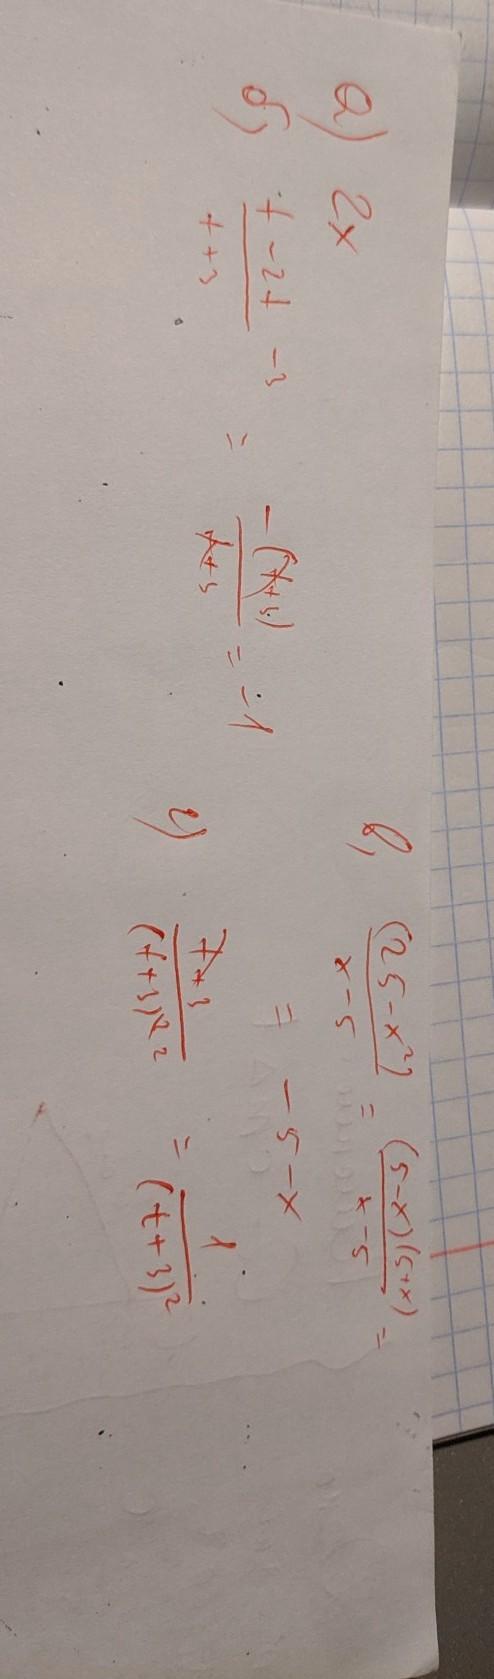 а) 2x
б) (t - 2t - 3)/(t + 3) = -(t+3)/(t+3) = -1
в) (25 - x²)/(x - 5) = (5-x)(5+x)/(x-5) =
= -5-x
г) (t+3)/(t+3) = 1/(t+3)²